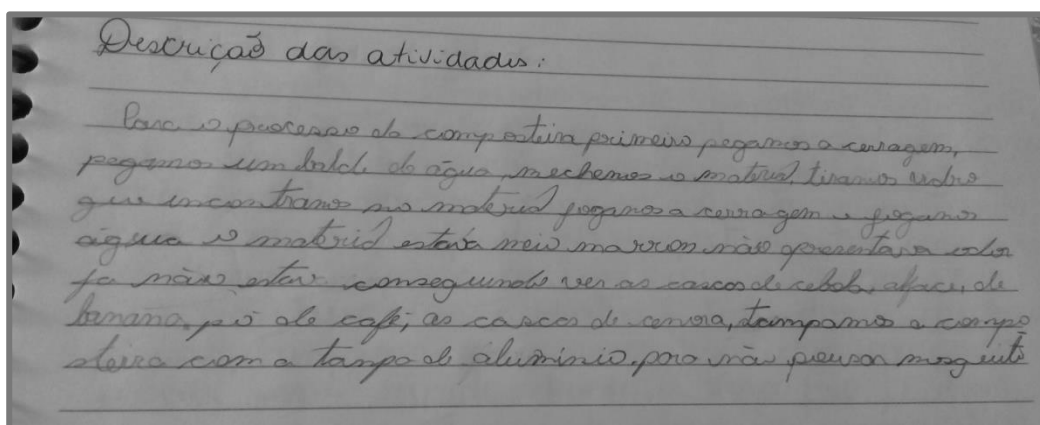 Descrição das atividades:
Para o processo da composteira primeiro pegamos a cerragem,
pegamos um balde de água, mechemos o material, tiramos vidro
que encontramos no material jogamos a cerragem e jogamos
água o material estava meio marron não apresentava odor
ja não estar conseguindo ver as cascas de cebola, alface, de
banana, pó de café, as cascas de cenora, tampamos a compo
steira com a tampa de aluminio, para não pousar musquito